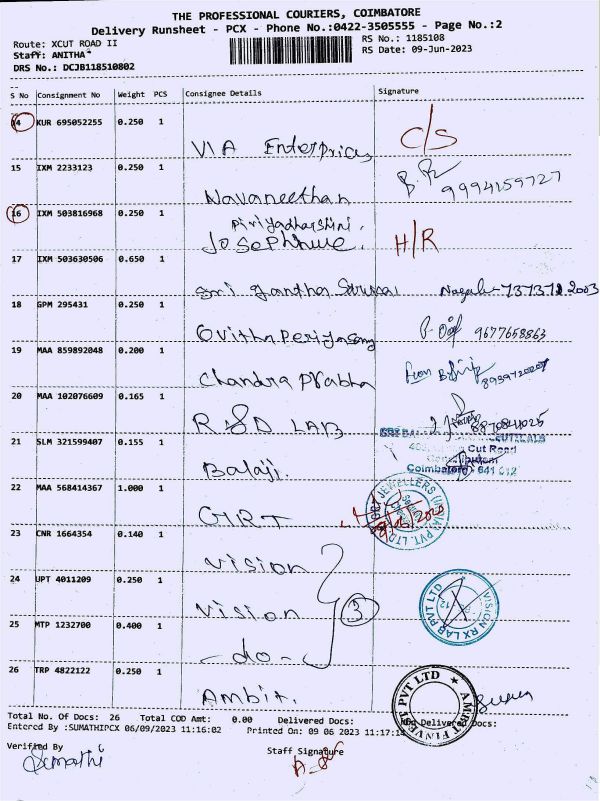 THE PROFESSIONAL COURIERS, COIMBATORE
Delivery Runsheet - PCX - Phone No.:0422-3505555 - Page No.:2
Route: XCUT ROAD II
RS No.: 1185108
Staff: ANITHA
RS Date: 09-Jun-2023
DRS No.: DCJB118510802
S No Consignment No Weight PCS Consignee Details Signature
14 KUR 695052255 0.250 1
VIA Enterprices C/S
15 IXM 2233123 0.250 1
Navaneethan 9994159727
16 IXM 503816968 0.250 1
Piriyadharshini.
Josephhine. H/R
17 IXM 503630506 0.650 1
Sri
18 GPM 295431 0.250 1
Ovitha Periyasamy 9677658863
19 MAA 859892048 0.200 1
Chandra Prabha
20 MAA 102076609 0.165 1
R&D LAB
21 SLM 321599407 0.155 1
Cut Road
Balaji. Coimbatore - 641 012
22 MAA 568414367 1.000 1
GRT
23 CNR 1664354 0.140 1
Vision
24 UPT 4011209 0.250 1
Vision 3
VISION RX LAB PVT LTD
25 MTP 1232700 0.400 1
-do-
26 TRP 4822122 0.250 1
Ambit.
AMBIT FINVEST PVT LTD
Total No. Of Docs: 26 Total COD Amt: 0.00 Delivered Docs: Delivered Docs:
Entered By :SUMATHIPCX 06/09/2023 11:16:02 Printed On: 09 06 2023 11:17:1
Verified By
Staff Signature
Sumathi